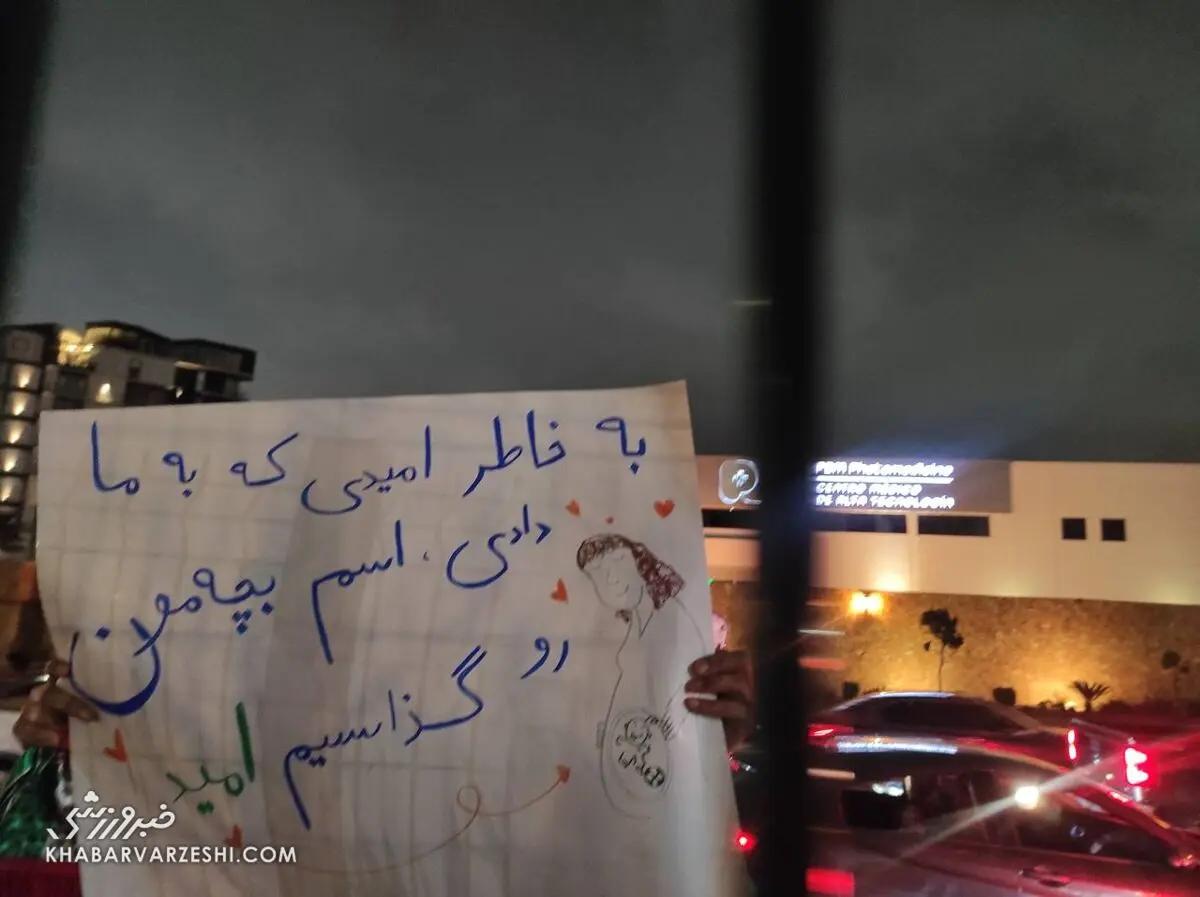 به خاطر امیدی که به ما
دادی، اسم بچه‌مون
رو گذاسیم امید
PBM Photomedicine
CENTRO MÉDICO
DE ALTA TECNOLOGÍA
خبرورزشی
KHABARVARZESHI.COM